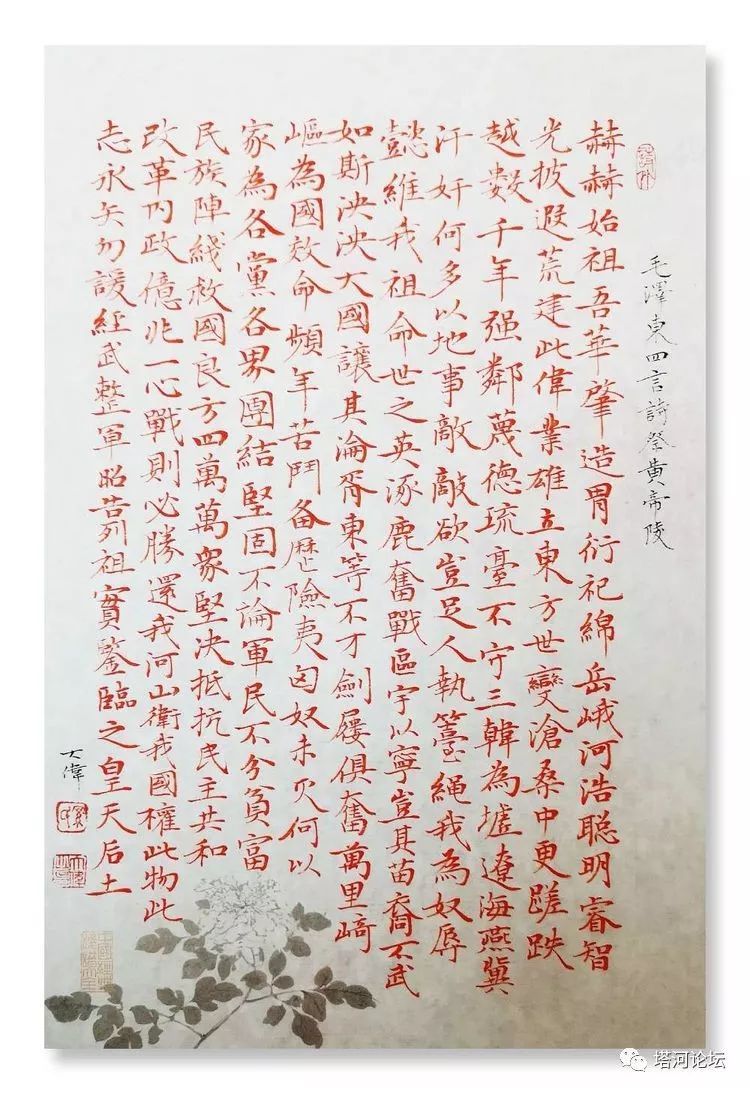 毛澤東四言詩祭黃帝陵
赫赫始祖吾華肇造胄衍祀綿岳峨河浩聰明睿智
光披遐荒建此偉業雄立東方世變滄桑中更蹉跌
越數千年强鄰蔑德琉臺不守三韓為墟遼海燕冀
汗奸何多以地事敵敵欲豈足人執籉繩我為奴辱
懿維我祖命世之英涿鹿奮戰區宇以寧豈其苗裔不武
如斯泱泱大國讓其淪胥東等不才劍屨俱奮萬里崎
嶇為國效命頻年苦鬥备歷險夷匈奴未灭何以
家為各黨各界團結堅固不論軍民不分貧富
民族陣綫救國良方四萬萬衆堅决抵抗民主共和
改革内政億兆一心戰則必勝還我河山衛我國權此物此
志永矢勿諼經武整軍昭告列祖實鑒臨之皇天后土
大偉
孫
塔河论坛